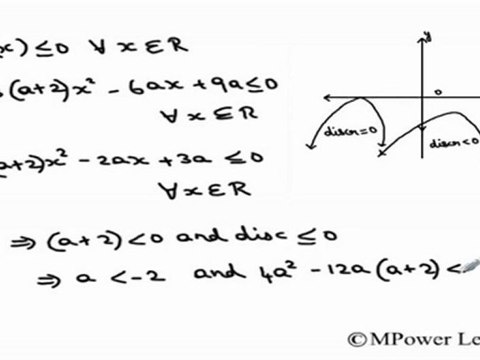 x) ≤0 ∀ x ∈ R
(a+2)x² - 6ax + 9a ≤0
∀ x ∈ R
a+2)x² - 2ax + 3a ≤0
∀ x ∈ R
⇒ (a+2) <0 and disc ≤0
⇒ a <-2 and 4a² - 12a (a+2) <
y
0
discr=0
discr<0
©MPower Le